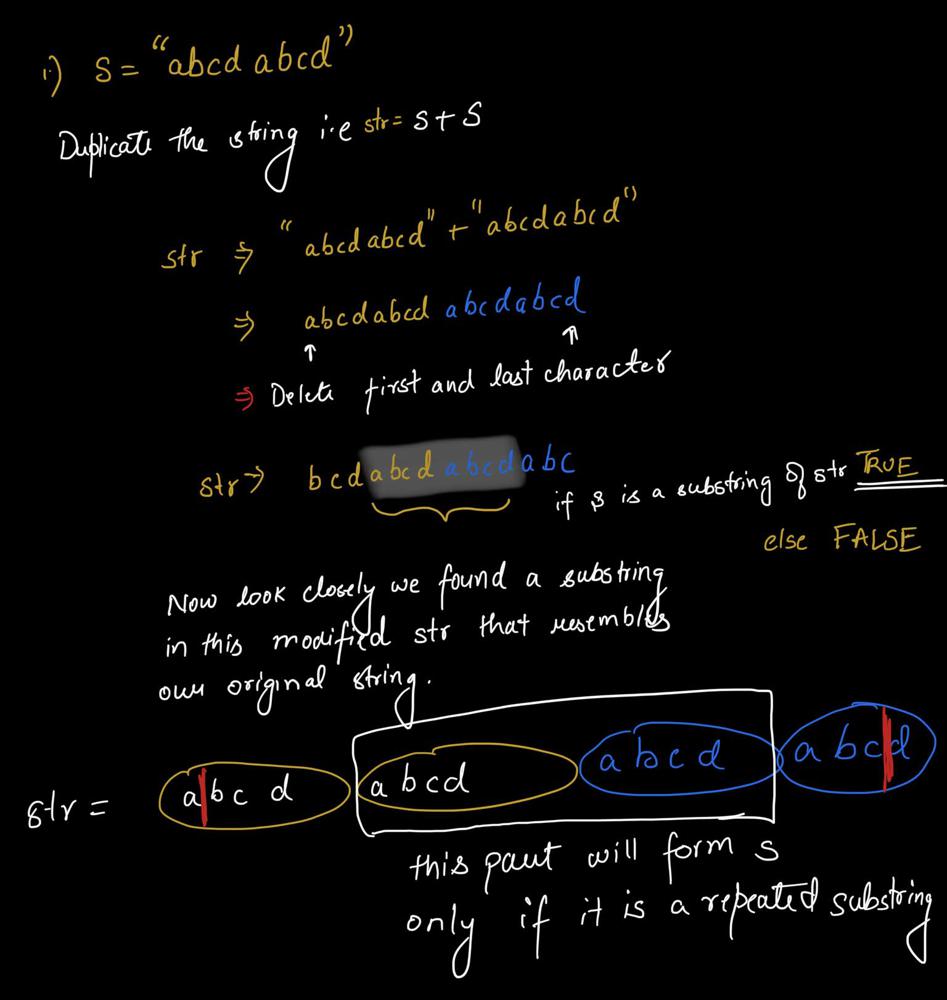 i) S = "abcd abcd"
Duplicate the string i.e str = S + S
str ⇒ "abcdabcd" + "abcdabcd"
⇒ abcdabcd abcdabcd
↑ ↑
⇒ Delete first and last character
str → bcdabcd abcdabc
if s is a substring of str TRUE
else FALSE
Now look closely we found a substring
in this modified str that resembles
our original string.
str = abcd abcd abcd abcd
this part will form s
only if it is a repeated substring